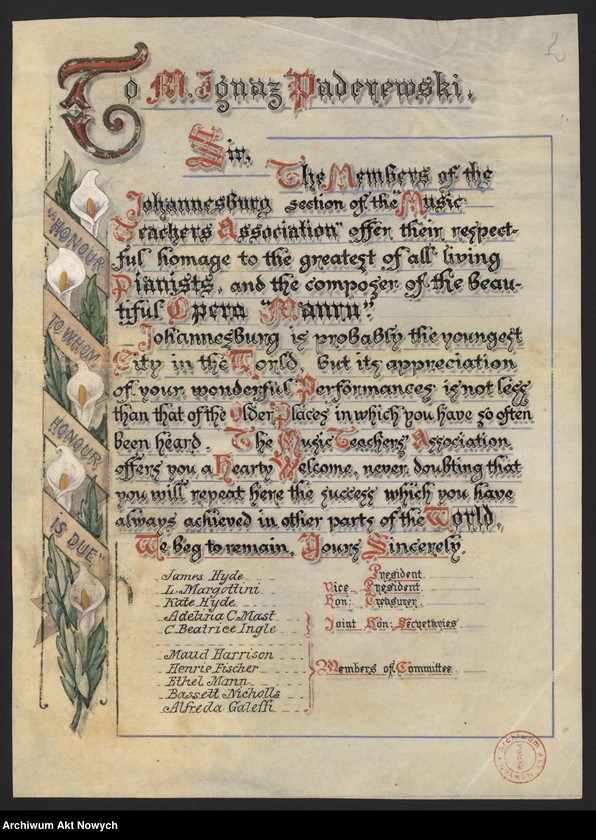 2
To M. Ignaz Paderewski,
Sir,
The Members of the
Johannesburg section of the "Music
Teachers Association" offer their respect-
ful homage to the greatest of all living
Pianists, and the composer of the beau-
tiful Opera "Manru".
Johannesburg is probably the youngest
City in the World, but its appreciation
of your wonderful Performances is not less
than that of the Older Places in which you have so often
been heard. The Music Teachers' Association
offers you a Hearty Welcome, never doubting that
you will repeat here the success which you have
always achieved in other parts of the World.
We beg to remain, Yours Sincerely.
"HONOUR
TO WHOM
HONOUR
IS DUE"
James Hyde President
L. Margottini Vice President
Kate Hyde Hon: Treasurer
Adelina C. Mast
C. Beatrice Ingle
Joint Hon: Secretaries
Maud Harrison
Henrie Fischer
Ethel Mann
Bassett Nicholls
Alfreda Galeffi
Members of Committee
Archiwum Akt Nowych
Archiwum Akt Nowych